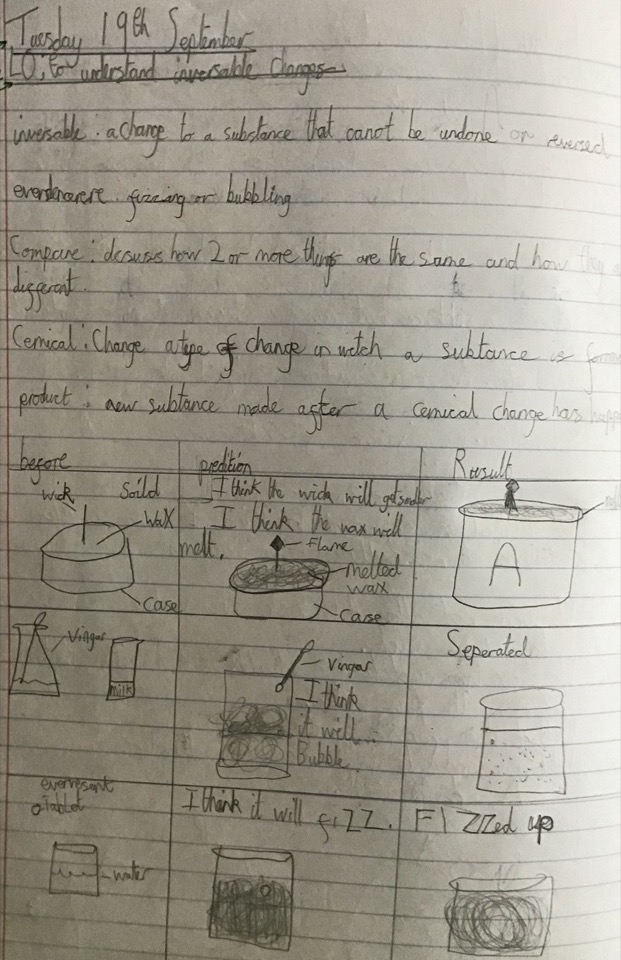 Tuesday 19th September
LO: to understand inversable changes
inversable: a change to a substance that canot be undone or reversed
fizzing or bubbling
Compare: how 2 or more things are the same and how they
different.
Cemical: Change a type of change in witch a subtance is
product: new subtance made after a cemical change has
before
predition
Rusult
wick
Soild
wax
Case
I think the wick will get
I think the wax well
melt.
Flame
melted
wax
Case
A
Vingar
milk
Vingar
I think
it will...
Bubble
Seperated
Tablet
water
I think it will fizz.
FIZZed up